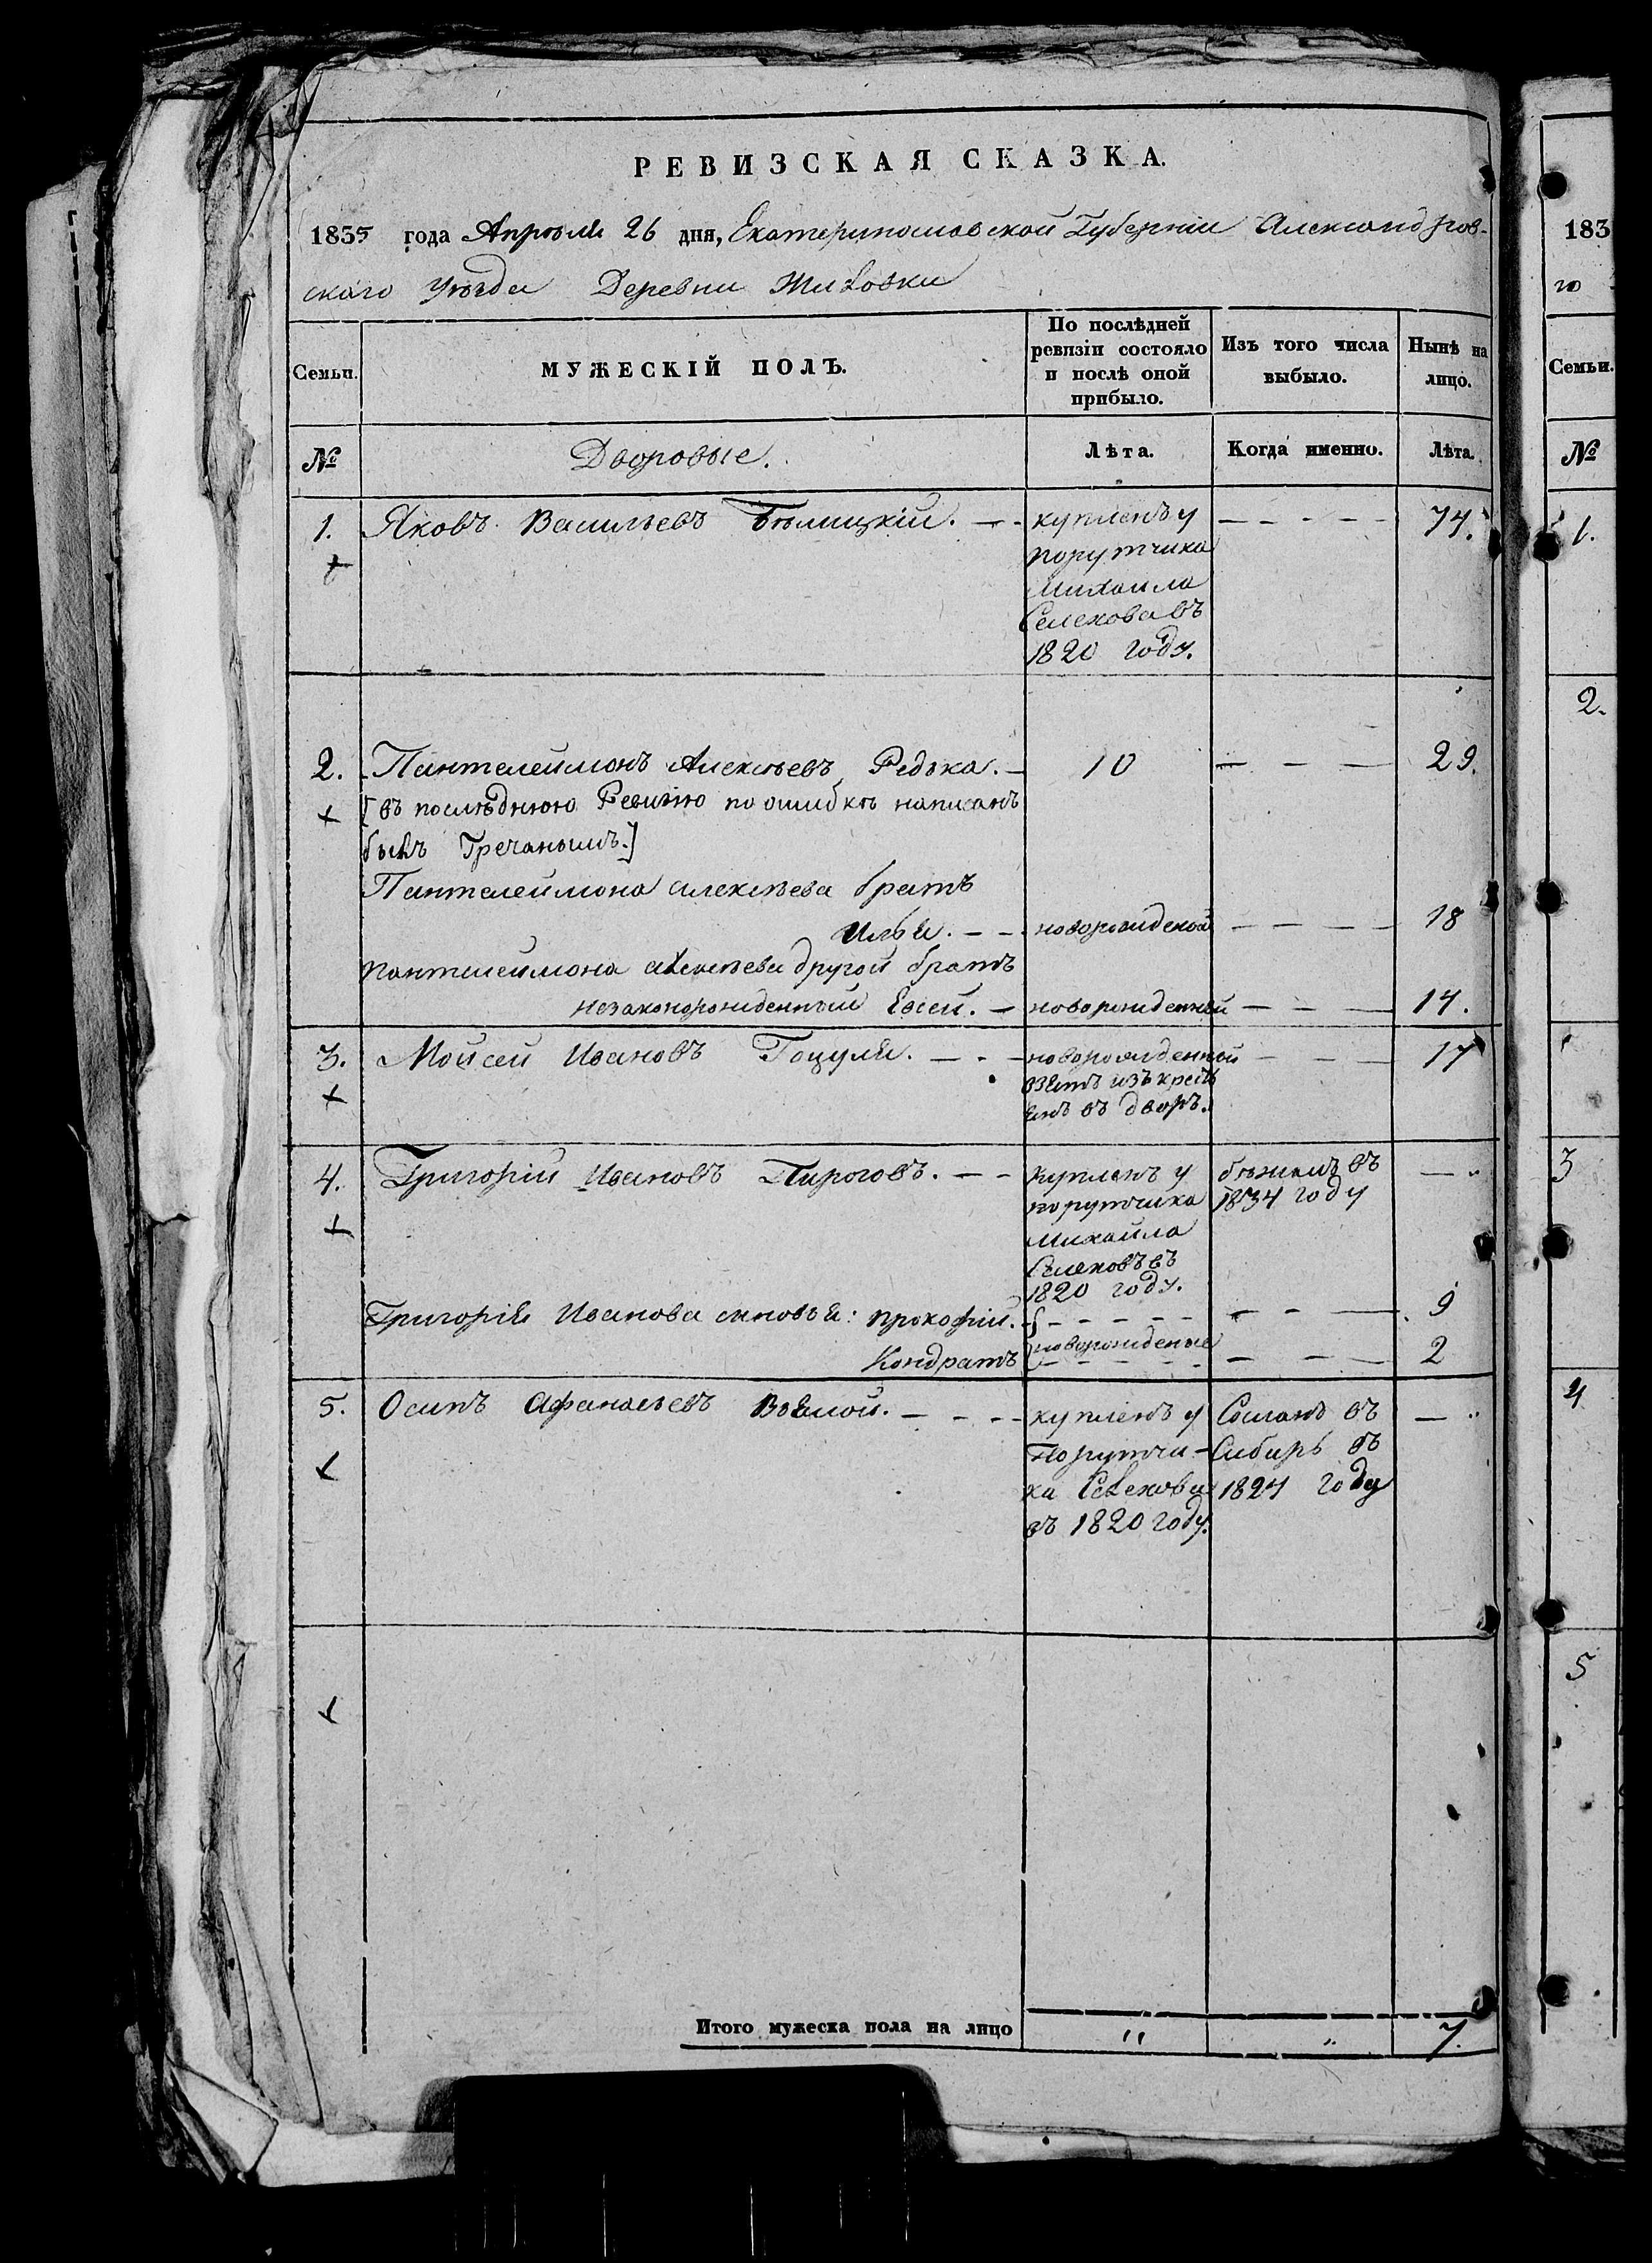 РЕВИЗСКАЯ СКАЗКА.
1835 года Апрѣля 26 дня, Екатеринославской Губерніи Александров-
скаго Уѣзда Деревни
Семьи.
МУЖЕСКІЙ ПОЛЪ.
По послѣдней ревизіи состояло и послѣ оной прибыло.
Изъ того числа выбыло.
Нынѣ на лицо.
№
Дворовые.
Лѣта.
Когда именно.
Лѣта.
1. Яковъ Васильевъ Бѣлицкій. — - купленъ у — - - - — 74.
порутчика
Михаила
Селехова въ
1820 году.
2. Пантелеймонъ Алексѣевъ Редька. — 10 — - — 29.
[въ послѣднюю Ревизію по ошибкѣ написанъ
былъ Гречанымъ.]
Пантелеймона Алексѣева братъ
Илья. - - новорожденой — - — — 18
Пантелеймона Алексѣева другой братъ
незаконорожденный Евсей. — новорожденный — - — 14.
3. Мойсей Ивановъ Гоцуля. — - - новорожденный — - — 17
взятъ изъ кресть
янъ въ дворъ.
4. Григорій Ивановъ Пироговъ. — - купленъ у бѣжалъ въ — "
порутчика 1834 году
Михайла
Селеховъ въ
1820 году.
Григорія Иванова сыновья: Прокофій. - - - - - - — - — 9
новорожденые
Кондратъ - - - - - — - — 2
5. Осипъ Афанасьевъ . — - - - купленъ у Сосланъ въ — "
Порутчи- Сибирь въ
ка Селехова 1827 году
въ 1820 году.
Итого мужеска пола на лицо " " 7.
183
го
Семьи.
№
1.
2.
3
4
5